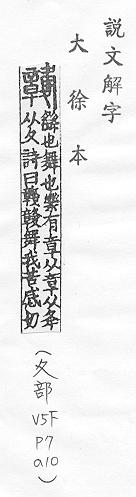 說文解字
大徐本
也舞也樂有章从章从夅
从夊詩曰竷竷舞我苦感切
(夊部
V5F
P7
a10)